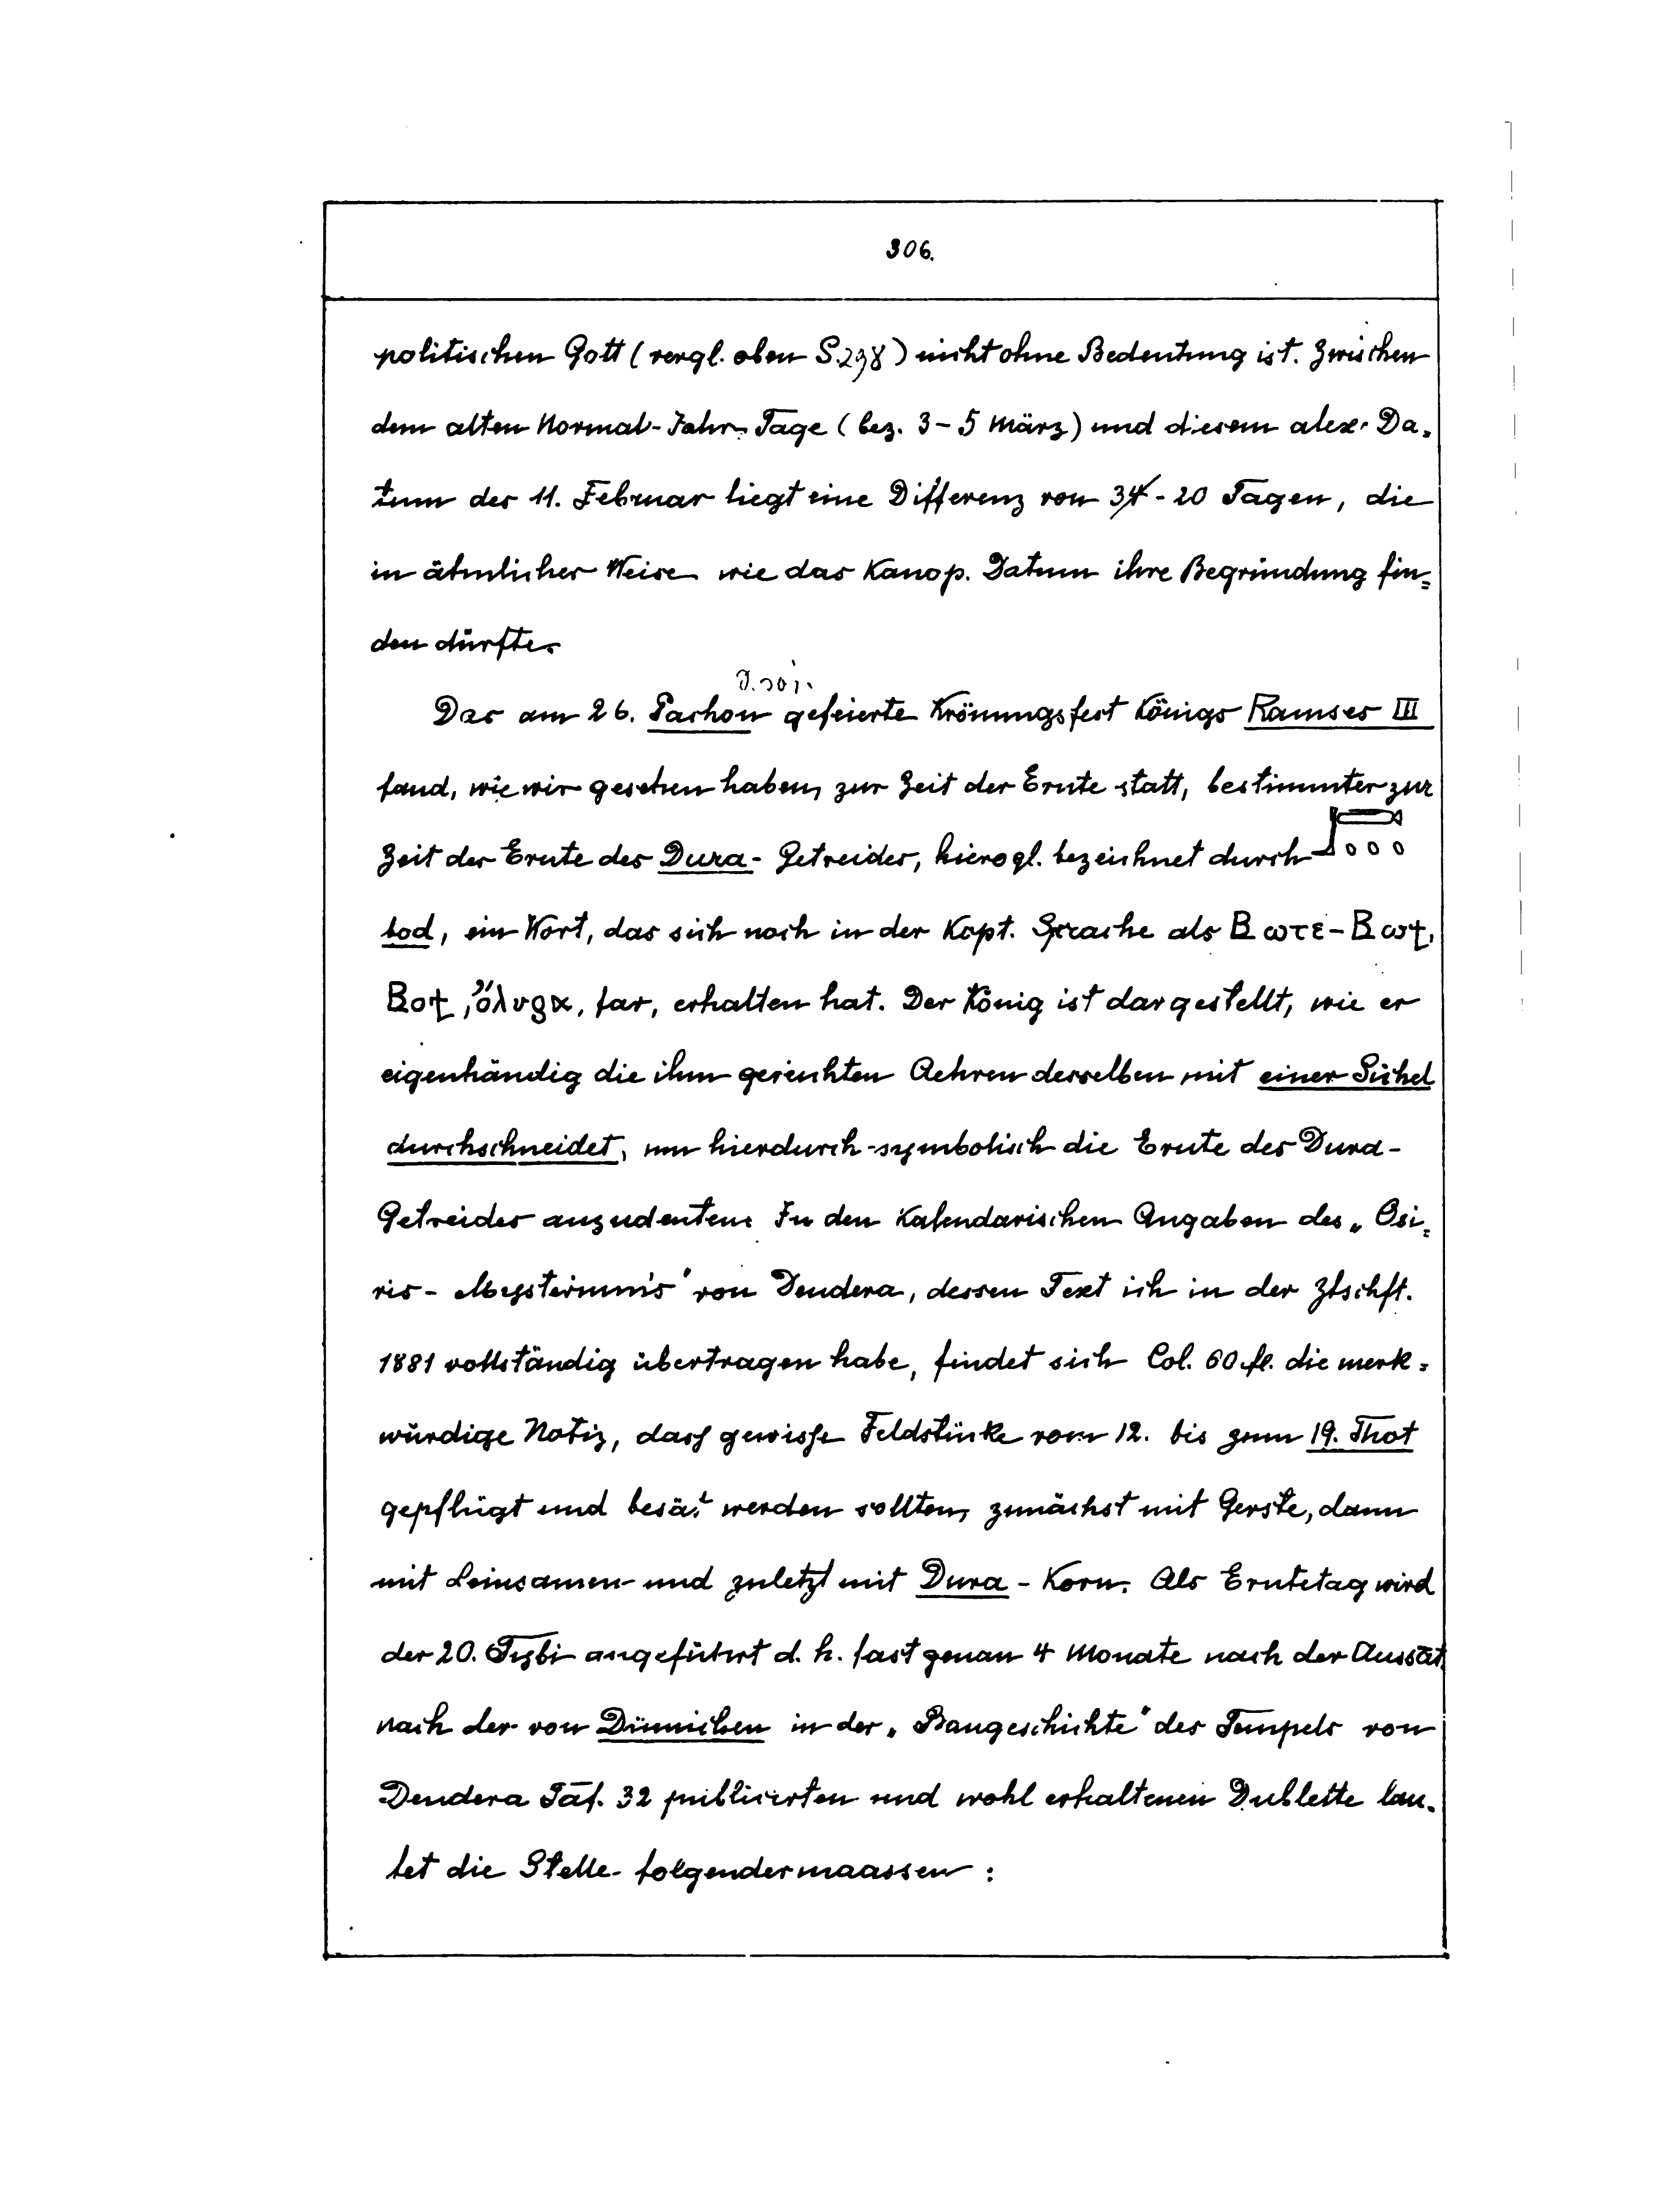 306.
politischen Gott (vergl. oben S. 298) nicht ohne Bedeutung ist. Zwischen
dem alten Normal-Jahr-Tage (bez. 3-5 März) und diesem alex. Da-
tum des 11. Februar liegt eine Differenz von - 20 Tagen, die
in ähnlicher Weise wie das Kanop. Datum ihre Begründung fin-
den dürfte.
Das am 26. Pachon gefeierte Krönungsfest Königs Ramses III
fand, wie wir gesehen haben, zur Zeit der Ernte statt, bestimmter zur
Zeit der Ernte des Dura-Getreides, hierogl. bezeichnet durch
bod, ein Wort, das sich noch in der Kopt. Sprache als Ⲃⲱⲧⲉ-Ⲃⲱϯ,
Ⲃⲟϯ, ὄλυρα, far, erhalten hat. Der König ist dargestellt, wie er
eigenhändig die ihm gereichten Aehren desselben mit einer Sichel
durchschneidet, um hierdurch symbolisch die Ernte des Dura-
Getreides anzudeuten. In den Kalendarischen Angaben des „Osi-
ris-Mysteriums" von Dendera, dessen Text ich in der Ztschft.
1881 vollständig übertragen habe, findet sich Col. 60 fl. die merk-
würdige Notiz, dass gewisse Feldstücke vom 12. bis zum 19. Thot
gepflügt und besät werden sollten, zunächst mit Gerste, dann
mit Leinsamen und zuletzt mit Dura-Korn. Als Erntetag wird
der 20. Tybi angeführt d. h. fast genau 4 Monate nach der Aussat
nach der von Dümichen in der „Baugeschichte" des Tempels von
Dendera Taf. 32 publicirten und wohl erhaltenen Dublette lau-
tet die Stelle folgendermaassen: